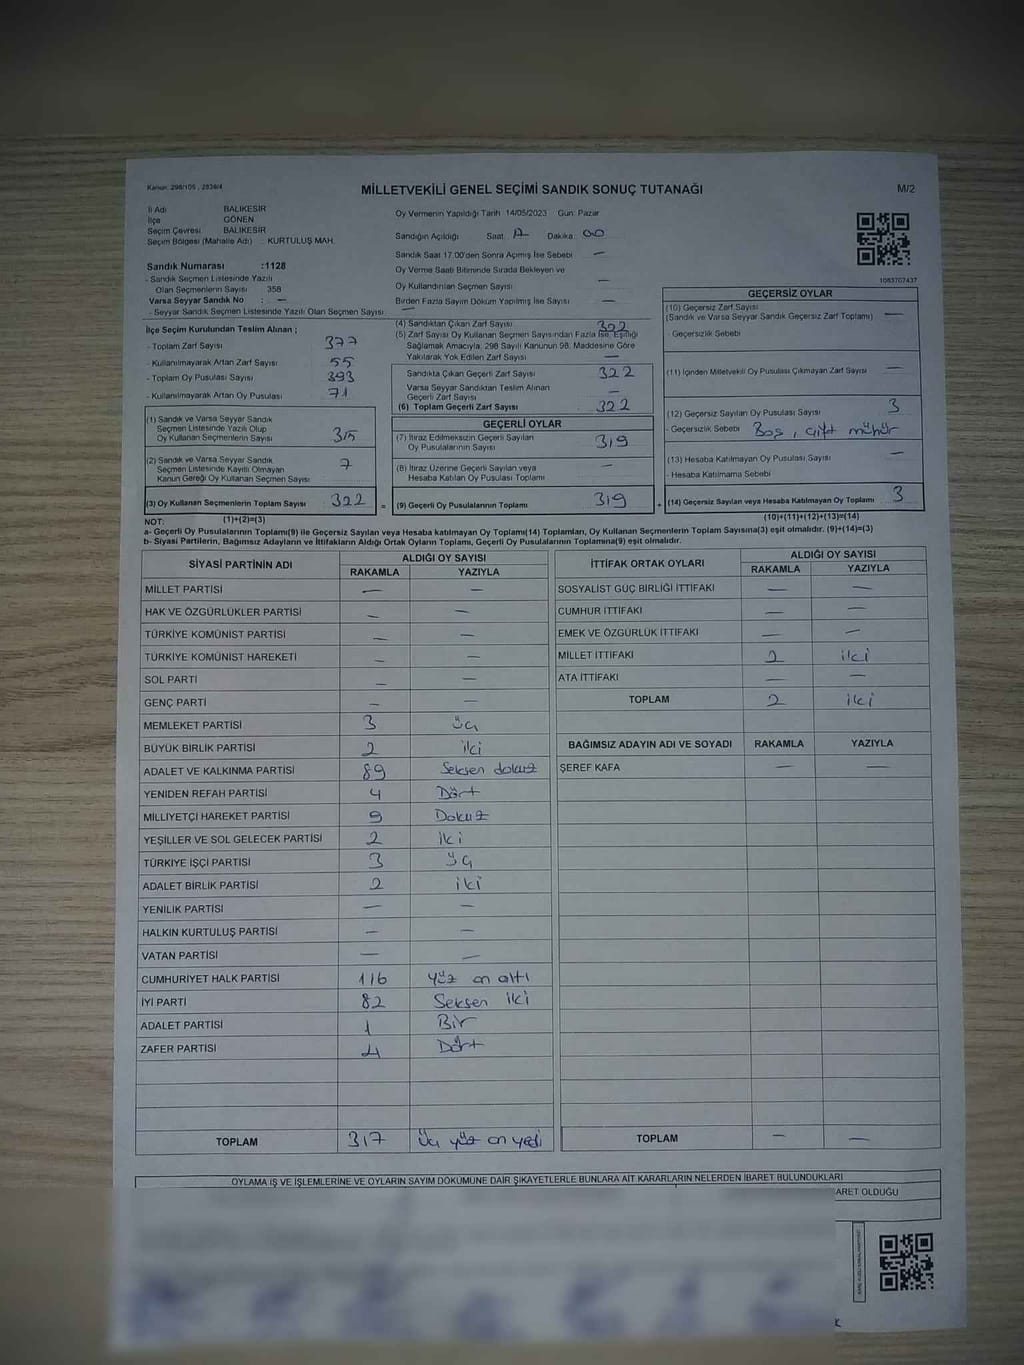 Kanun: 298/105 , 2839/4
MİLLETVEKİLİ GENEL SEÇİMİ SANDIK SONUÇ TUTANAĞI
M/2
İl Adı BALIKESİR
İlçe GÖNEN
Seçim Çevresi BALIKESİR
Seçim Bölgesi (Mahalle Adı) : KURTULUŞ MAH.
Oy Vermenin Yapıldığı Tarih 14/05/2023 Gün: Pazar
Sandığın Açıldığı Saat Dakika 00
Sandık Saat 17.00'den Sonra Açılmış İse Sebebi —
Oy Verme Saati Bitiminde Sırada Bekleyen ve
Oy Kullandırılan Seçmen Sayısı —
Birden Fazla Sayım Döküm Yapılmış İse Sayısı —
Sandık Numarası :1128
- Sandık Seçmen Listesinde Yazılı
Olan Seçmenlerin Sayısı 358
Varsa Seyyar Sandık No : —
- Seyyar Sandık Seçmen Listesinde Yazılı Olan Seçmen Sayısı —
1083707437
İlçe Seçim Kurulundan Teslim Alınan ;
- Toplam Zarf Sayısı 377
- Kullanılmayarak Artan Zarf Sayısı 55
- Toplam Oy Pusulası Sayısı 393
- Kullanılmayarak Artan Oy Pusulası 71
(1) Sandık ve Varsa Seyyar Sandık
Seçmen Listesinde Yazılı Olup
Oy Kullanan Seçmenlerin Sayısı 315
(2) Sandık ve Varsa Seyyar Sandık
Seçmen Listesinde Kayıtlı Olmayan
Kanun Gereği Oy Kullanan Seçmen Sayısı 7
(3) Oy Kullanan Seçmenlerin Toplam Sayısı 322 =
(1)+(2)=(3)
(4) Sandıktan Çıkan Zarf Sayısı 322
(5) Zarf Sayısı Oy Kullanan Seçmen Sayısından Fazla İse, Eşitliği
Sağlamak Amacıyla, 298 Sayılı Kanunun 98. Maddesine Göre
Yakılarak Yok Edilen Zarf Sayısı —
Sandıkta Çıkan Geçerli Zarf Sayısı 322
Varsa Seyyar Sandıktan Teslim Alınan
Geçerli Zarf Sayısı —
(6) Toplam Geçerli Zarf Sayısı 322
GEÇERLİ OYLAR
(7) İtiraz Edilmeksizin Geçerli Sayılan
Oy Pusulalarının Sayısı 319
(8) İtiraz Üzerine Geçerli Sayılan veya
Hesaba Katılan Oy Pusulası Toplamı —
(9) Geçerli Oy Pusulalarının Toplamı 319 +
GEÇERSİZ OYLAR
(10) Geçersiz Zarf Sayısı
(Sandık ve Varsa Seyyar Sandık Geçersiz Zarf Toplamı) —
- Geçersizlik Sebebi
(11) İçinden Milletvekili Oy Pusulası Çıkmayan Zarf Sayısı —
(12) Geçersiz Sayılan Oy Pusulası Sayısı 3
- Geçersizlik Sebebi Boş , çift mühür
(13) Hesaba Katılmayan Oy Pusulası Sayısı —
- Hesaba Katılmama Sebebi
(14) Geçersiz Sayılan veya Hesaba Katılmayan Oy Toplamı 3
(10)+(11)+(12)+(13)=(14)
NOT:
a- Geçerli Oy Pusulalarının Toplamı(9) ile Geçersiz Sayılan veya Hesaba katılmayan Oy Toplamı(14) Toplamları, Oy Kullanan Seçmenlerin Toplam Sayısına(3) eşit olmalıdır. (9)+(14)=(3)
b- Siyasi Partilerin, Bağımsız Adayların ve İttifakların Aldığı Ortak Oyların Toplamı, Geçerli Oy Pusulalarının Toplamına(9) eşit olmalıdır.
SİYASİ PARTİNİN ADI ALDIĞI OY SAYISI
RAKAMLA YAZIYLA
MİLLET PARTİSİ — —
HAK VE ÖZGÜRLÜKLER PARTİSİ — —
TÜRKİYE KOMÜNİST PARTİSİ — —
TÜRKİYE KOMÜNİST HAREKETİ — —
SOL PARTİ — —
GENÇ PARTİ — —
MEMLEKET PARTİSİ 3 üç
BÜYÜK BİRLİK PARTİSİ 2 iki
ADALET VE KALKINMA PARTİSİ 89 Seksen dokuz
YENİDEN REFAH PARTİSİ 4 Dört
MİLLİYETÇİ HAREKET PARTİSİ 9 Dokuz
YEŞİLLER VE SOL GELECEK PARTİSİ 2 iki
TÜRKİYE İŞÇİ PARTİSİ 3 üç
ADALET BİRLİK PARTİSİ 2 iki
YENİLİK PARTİSİ — —
HALKIN KURTULUŞ PARTİSİ — —
VATAN PARTİSİ — —
CUMHURİYET HALK PARTİSİ 116 yüz on altı
İYİ PARTİ 82 Seksen iki
ADALET PARTİSİ 1 Bir
ZAFER PARTİSİ 4 Dört
TOPLAM 317 Üç yüz on yedi
İTTİFAK ORTAK OYLARI ALDIĞI OY SAYISI
RAKAMLA YAZIYLA
SOSYALİST GÜÇ BİRLİĞİ İTTİFAKI — —
CUMHUR İTTİFAKI — —
EMEK VE ÖZGÜRLÜK İTTİFAKI — —
MİLLET İTTİFAKI 2 iki
ATA İTTİFAKI — —
TOPLAM 2 iki
BAĞIMSIZ ADAYIN ADI VE SOYADI RAKAMLA YAZIYLA
ŞEREF KAFA — —
TOPLAM — —
OYLAMA İŞ VE İŞLEMLERİNE VE OYLARIN SAYIM DÖKÜMÜNE DAİR ŞİKAYETLERLE BUNLARA AİT KARARLARIN NELERDEN İBARET BULUNDUKLARI
ARET OLDUĞU